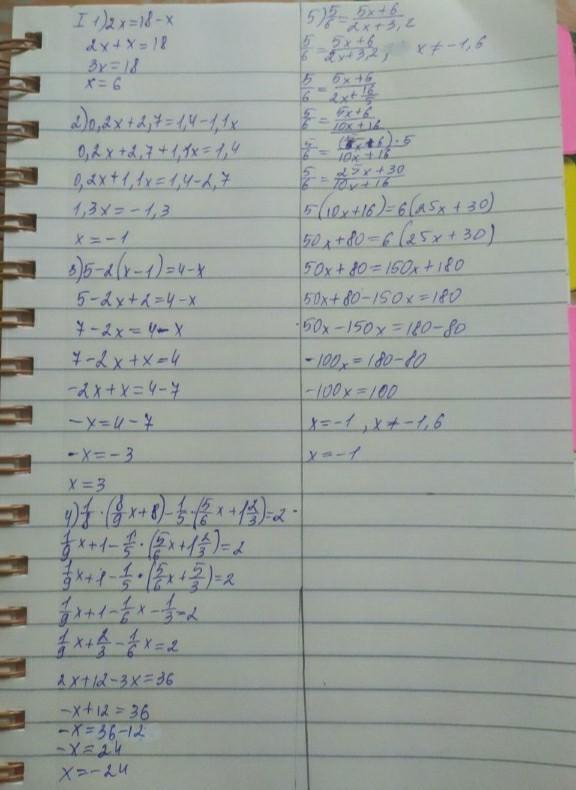 I 1) 2x=18-x
2x+x=18
3x=18
x=6
2) 0,2x+2,7=1,4-1,1x
0,2x+2,7+1,1x=1,4
0,2x+1,1x=1,4-2,7
1,3x=-1,3
x=-1
3) 5-2(x-1)=4-x
5-2x+2=4-x
7-2x=4-x
7-2x+x=4
-2x+x=4-7
-x=4-7
-x=-3
x=3
4) 1/8·(8/9x+8)-1/5·(5/6x+1 2/3)=2
1/9x+1-1/5·(5/6x+1 2/3)=2
1/9x+1-1/5·(5/6x+5/3)=2
1/9x+1-1/6x-1/3=2
1/9x+2/3-1/6x=2
2x+12-3x=36
-x+12=36
-x=36-12
-x=24
x=-24
5) 5/6=(5x+6)/(2x+3,2)
5/6=(5x+6)/(2x+3,2), x≠-1,6
5/6=(5x+6)/(2x+16/5)
5/6=(5x+6)/(10x+16)
5/6=((5x+6)·5)/(10x+16)
5/6=(25x+30)/(10x+16)
5(10x+16)=6(25x+30)
50x+80=6(25x+30)
50x+80=150x+180
50x+80-150x=180
50x-150x=180-80
-100x=180-80
-100x=100
x=-1, x≠-1,6
x=-1